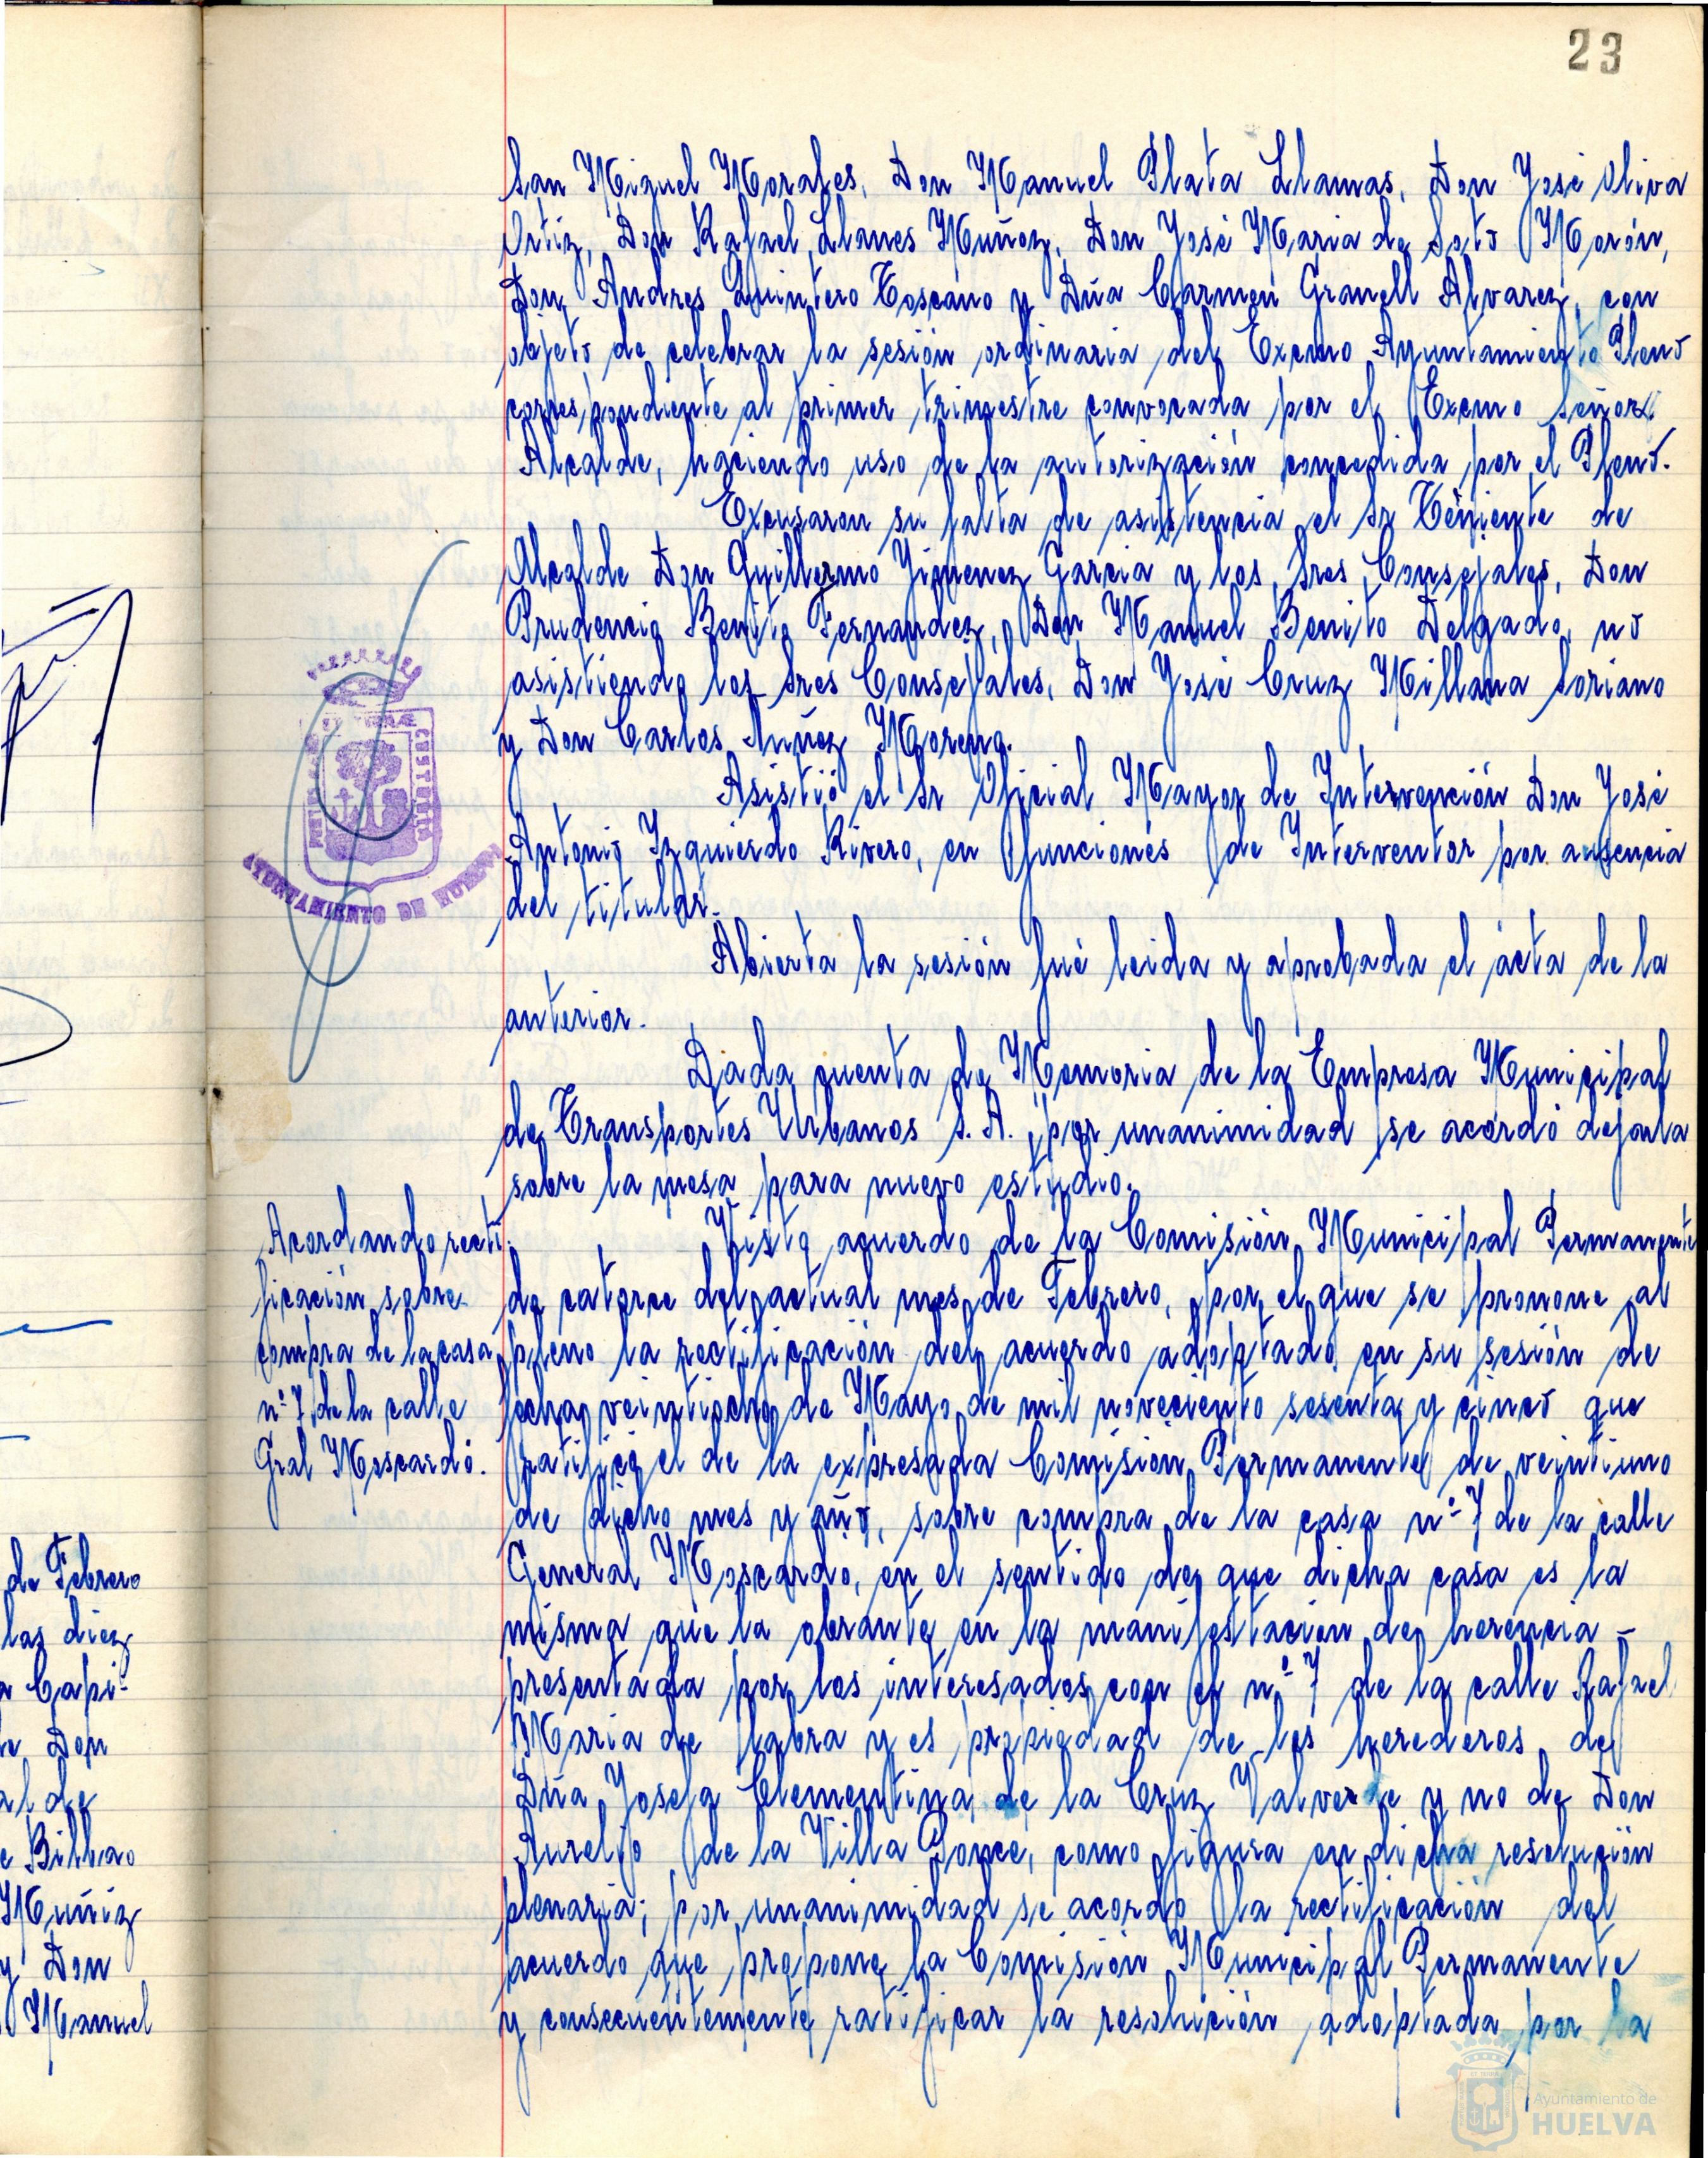 23
San Miguel Morales, Don Manuel Plata Llamas, Don José Oliva
Ortiz, Don Rafael Llanes Muñoz, Don José Maria de Soto Morón,
Don Andres Quintero Toscano y Dña Carmen Granell Alvarez, con
objeto de celebrar la sesión ordinaria del Excmo Ayuntamiento Pleno
correspondiente al primer trimestre convocada por el Excmo Señor
Alcalde, haciendo uso de la autorización concedida por el Pleno.
Excusaron su falta de asistencia el Sr Teniente de
Alcalde Don Guillermo Jimenez Garcia y los Sres Consejales, Don
Prudencio Benito Fernandez, Don Manuel Benito Delgado, no
asistiendo los Sres Consejales, Don José Cruz Millana Soriano
y Don Carlos Nuñez Moreno.
Asistió el Sr Oficial Mayor de Intervención Don José
Antonio Izquierdo Rivero, en funciones de Interventor por ausencia
del titular.
Abierta la sesión fué leida y aprobada el acta de la
anterior.
Dada cuenta de Memoria de la Empresa Municipal
de Transportes Urbanos S. A., por unanimidad se acordó dejarla
sobre la mesa para nuevo estudio.
Acordando recti-
ficación sobre
compra de la casa
nº 7 de la calle
Gral Moscardó.
Visto acuerdo de la Comisión Municipal Permanente
de catorce del actual mes de Febrero, por el que se pronone al
pleno la rectificación del acuerdo adoptado en su sesión de
fecha veintiocho de Mayo de mil noveciento sesenta y cinco que
ratificó el de la expresada Comisión Permanente de veintiuno
de dicho mes y año, sobre compra de la casa nº 7 de la calle
General Moscardo, en el sentido de que dicha casa es la
misma que la obrante en la manifestación de herencia -
presentada por los interesados con el nº 7 de la calle Rafael
Maria de Labra y es propiedad de los herederos de
Dña Josefa Clementina de la Cruz Valverde y no de Don
Aurelio de la Villa Ponce, como figura en dicha resolución
plenaria; por unanimidad se acordo la rectificación del
acuerdo que propone la Comisión Municipal Permanente
y consecuentemente ratificar la resolución adoptada por la
AYUNTAMIENTO DE HUELVA
de Febrero
las diez
Capi-
Don
al de
Bilbao
Muñiz
y Don
Manuel
Ayuntamiento de
HUELVA